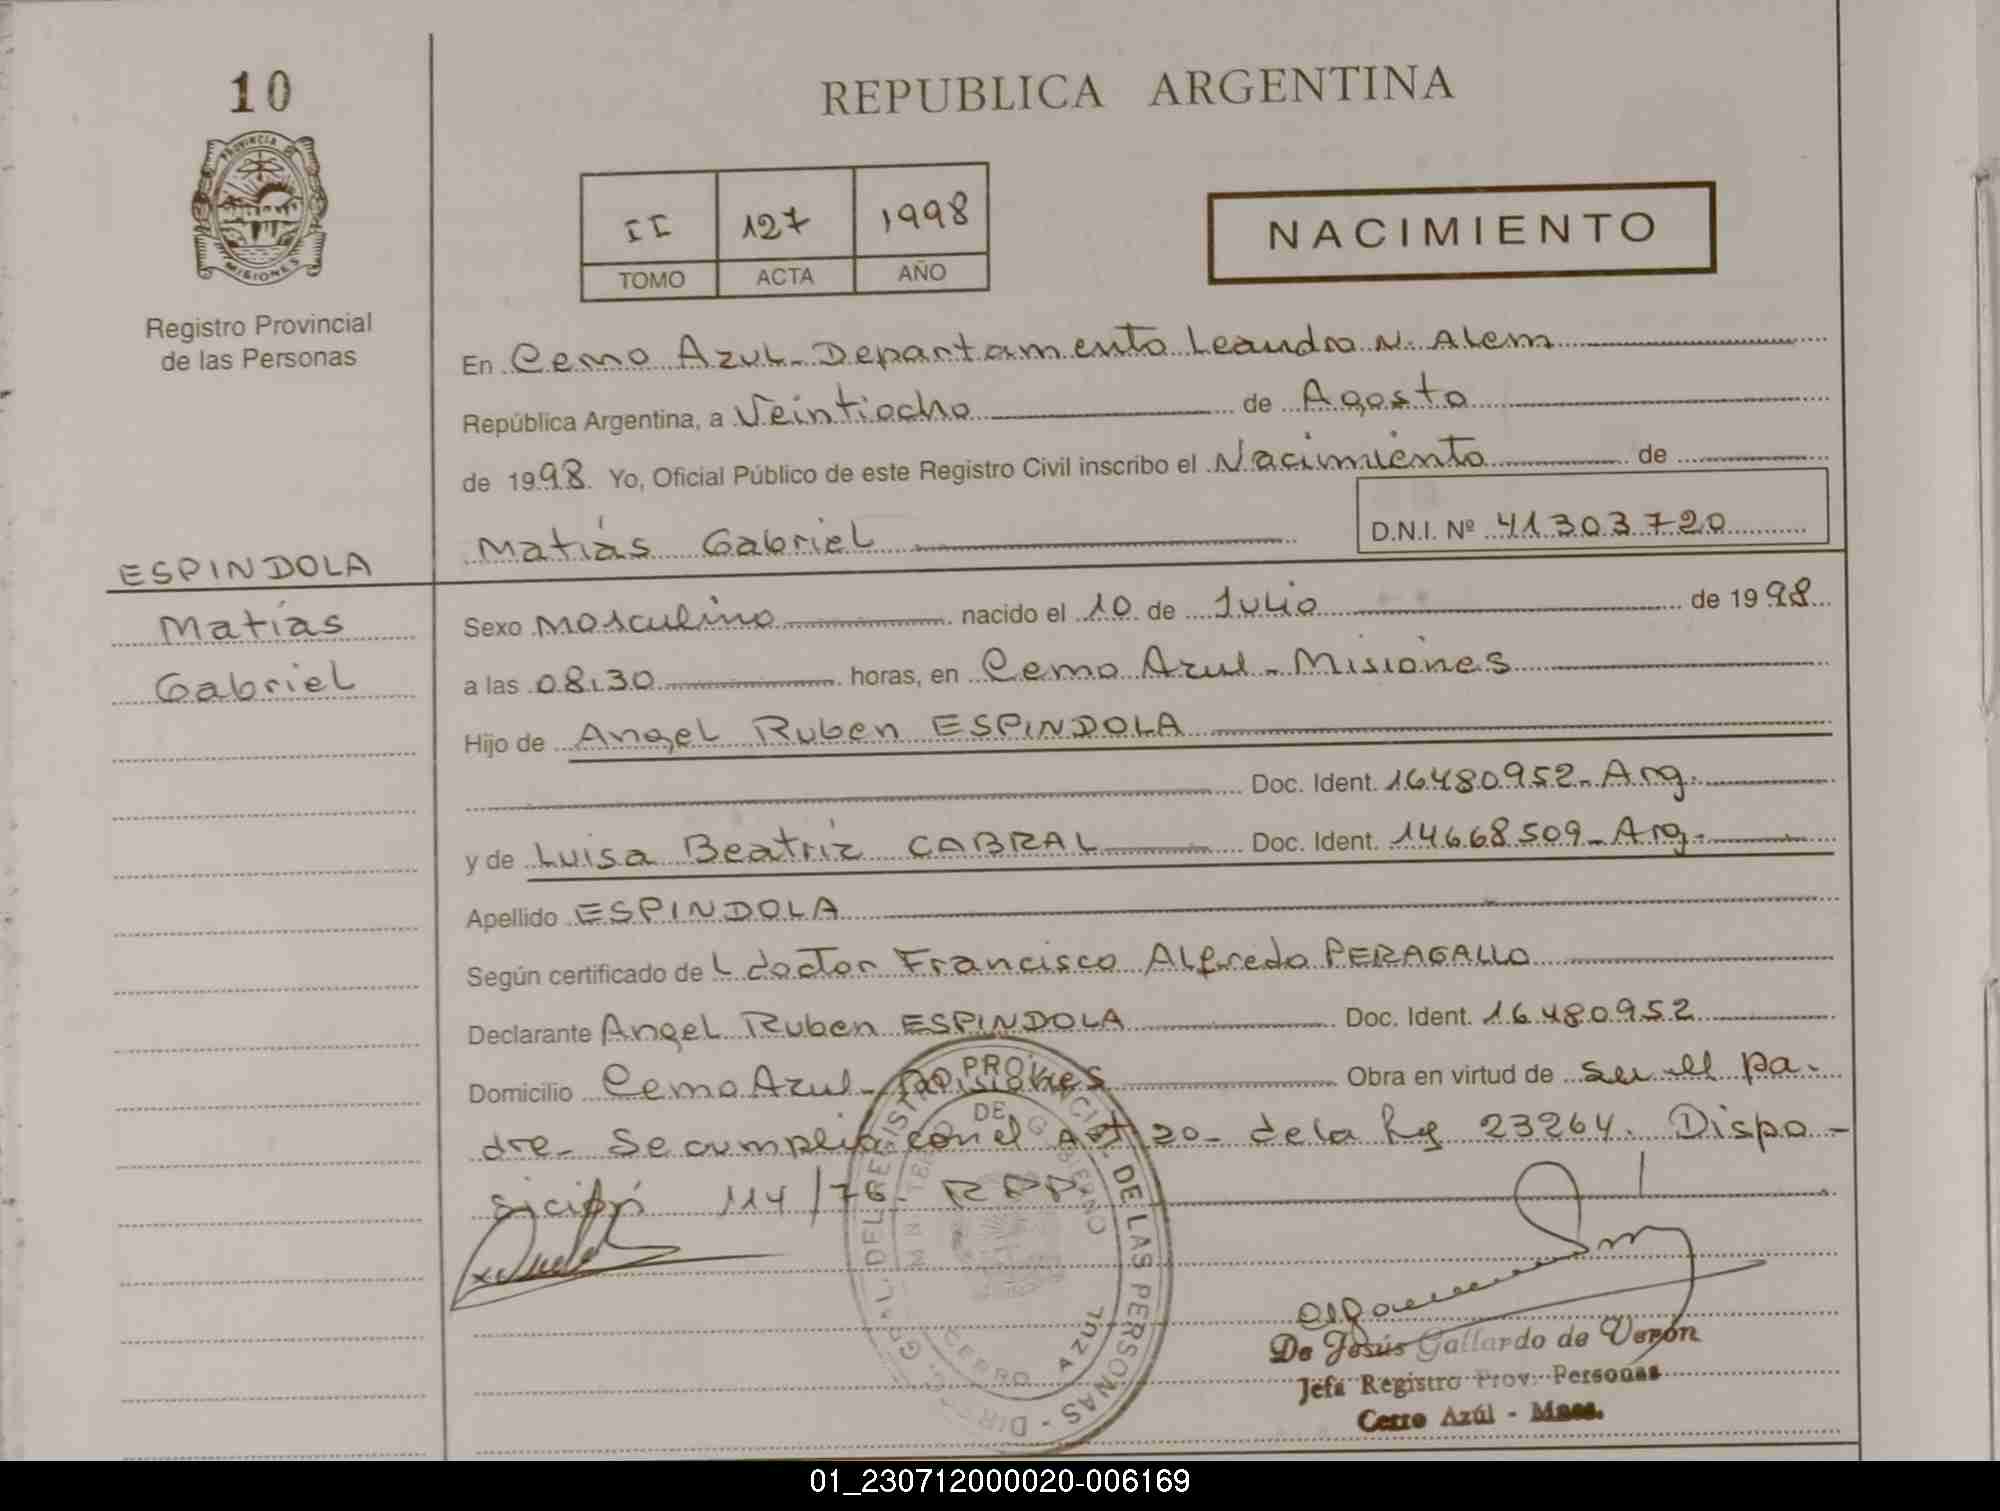 10
REPUBLICA ARGENTINA
PROVINCIA DE
MISIONES
Registro Provincial
de las Personas
II 127 1998
TOMO ACTA AÑO
NACIMIENTO
En Cerro Azul - Departamento Leandro N. Alem
República Argentina, a Veintiocho de Agosto
de 1998. Yo, Oficial Público de este Registro Civil inscribo el Nacimiento de
Matías Gabriel D.N.I. Nº 41303720
ESPINDOLA
Matías
Gabriel
Sexo Masculino nacido el 10 de Julio de 1998
a las 08,30 horas, en Cerro Azul - Misiones
Hijo de Angel Ruben ESPINDOLA
Doc. Ident. 16480952 - Arg.
y de Luisa Beatriz CABRAL Doc. Ident. 14668509 - Arg.
Apellido ESPINDOLA
Según certificado del doctor Francisco Alfredo PERAGALLO
Declarante Angel Ruben ESPINDOLA Doc. Ident. 16480952
Domicilio Cerro Azul - Misiones Obra en virtud de ser el pa-
dre - Se cumplió con el Art 20 - de la ley 23264. Dispo-
sición 114/76 - RPP
DIREC. GRAL. DEL REGISTRO PROVINCIAL DE LAS PERSONAS -
MINISTERIO DE GOBIERNO
CERRO AZUL
De Jesús Gallardo de Verón
Jefa Registro Prov. Personas
Cerro Azúl - Mnes.
01_230712000020-006169